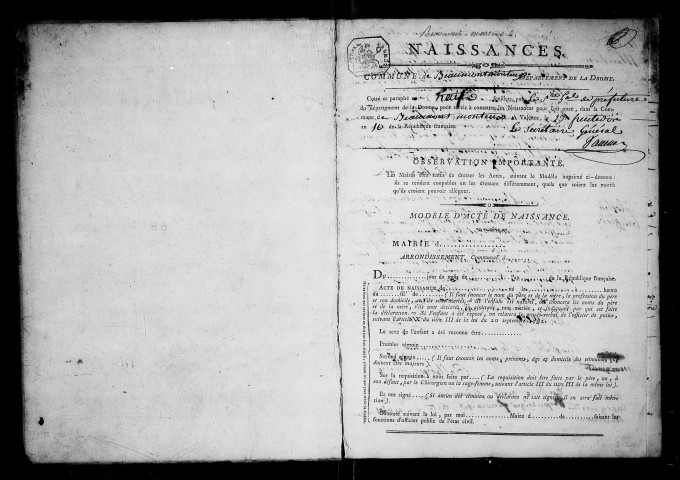 Beaumont-monteux 4.
NAISSANCES.
COMMUNE de Beaumontmonteux DÉPARTEMENT DE LA DROME.
Cotté et paraphé feuillets, par Le Sre Gal de préfecture
du Département de la Drome, pour servir à constater les Naissances pour l'an onze, dans la Commune
de Beaumont monteux A Valence, le 27 fructidor
an 10 de la République française. Le Secrétaire Général
OBSERVATION IMPORTANTE.
Les Maires sont tenus de dresser les Actes, suivant le Modèle imprimé ci-dessous :
ils se rendent coupables en les dressant différemment, quels que soient les motifs
qu'ils croient pouvoir alléguer.
MODÈLE D'ACTE DE NAISSANCE.
MAIRIE d
ARRONDISSEMENT Communal d
DU jour du mois de l'an de la République française.
ACTE DE NAISSANCE de né le à heures
du fil de (Il faut énoncer le nom du père et de la mère, la profession du père
et son domicile, s'ils sont mariés. Si l'enfant est naturel, on énonce les noms du père
et de la mère, s'ils sont déclarés, en ajoutant, non mariés, et indiquant par qui est faite
la déclaration. Si l'enfant a été exposé, on relatera le procès-verbal de l'officier de police,
suivant l'article IX du titre III de la loi du 20 septembre 1792.
Le sexe de l'enfant a été reconnu être
Premier témoin
Second témoin (Il faut énoncer les noms, prénoms, âge et domicile des témoins ; ils
doivent être majeurs).
Sur la réquisition à nous faite par (La réquisition doit être faite par le père, ou, à
son défaut, par le Chirurgien ou la sage-femme, suivant l'article III du titre III de la même loi).
Et ont signé (Si aucun des témoins ou déclarant ne sait signer, il en sera fait mention).
Constaté suivant la loi, par moi Maire d faisant les
fonctions d'officier public de l'état civil.